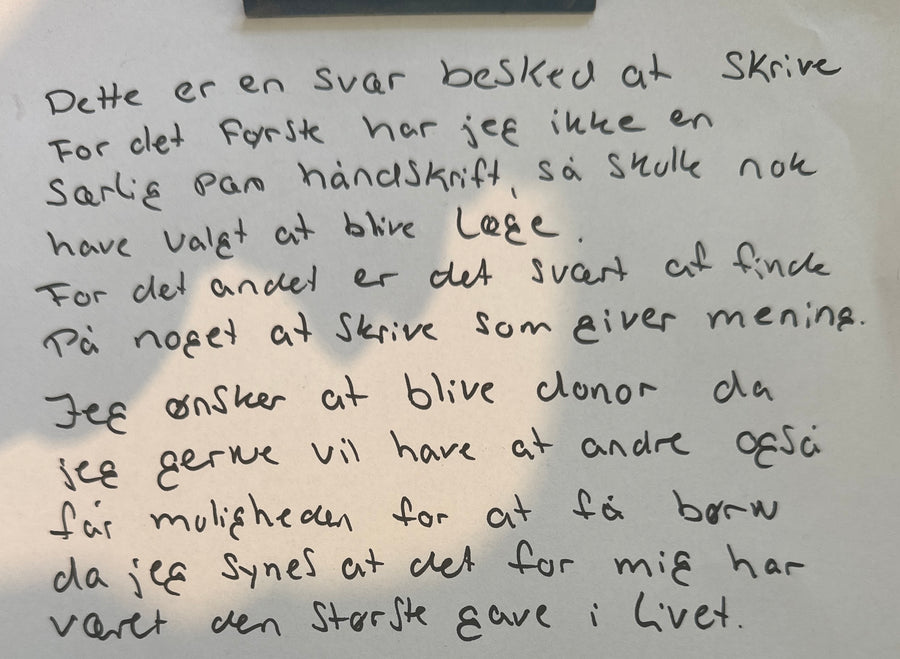 Dette er en svær besked at skrive
For det første har jeg ikke en
særlig pæn håndskrift, så skulle nok
have valgt at blive læge.
For det andet er det svært at finde
på noget at skrive som giver mening.
Jeg ønsker at blive donor da
jeg gerne vil have at andre også
får muligheden for at få børn
da jeg synes at det for mig har
været den største gave i livet.